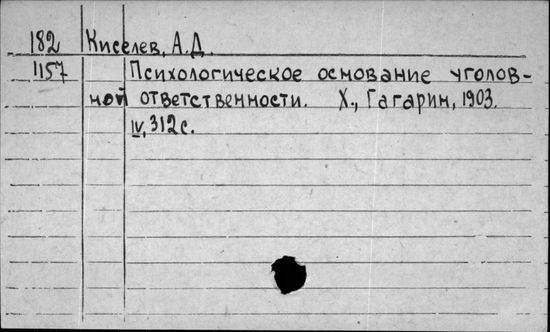 182 Киселев, А.Д.
1157 Психологическое основание уголов-
ной ответственности. Х., Гагарин, 1903.
IV, 312 с.